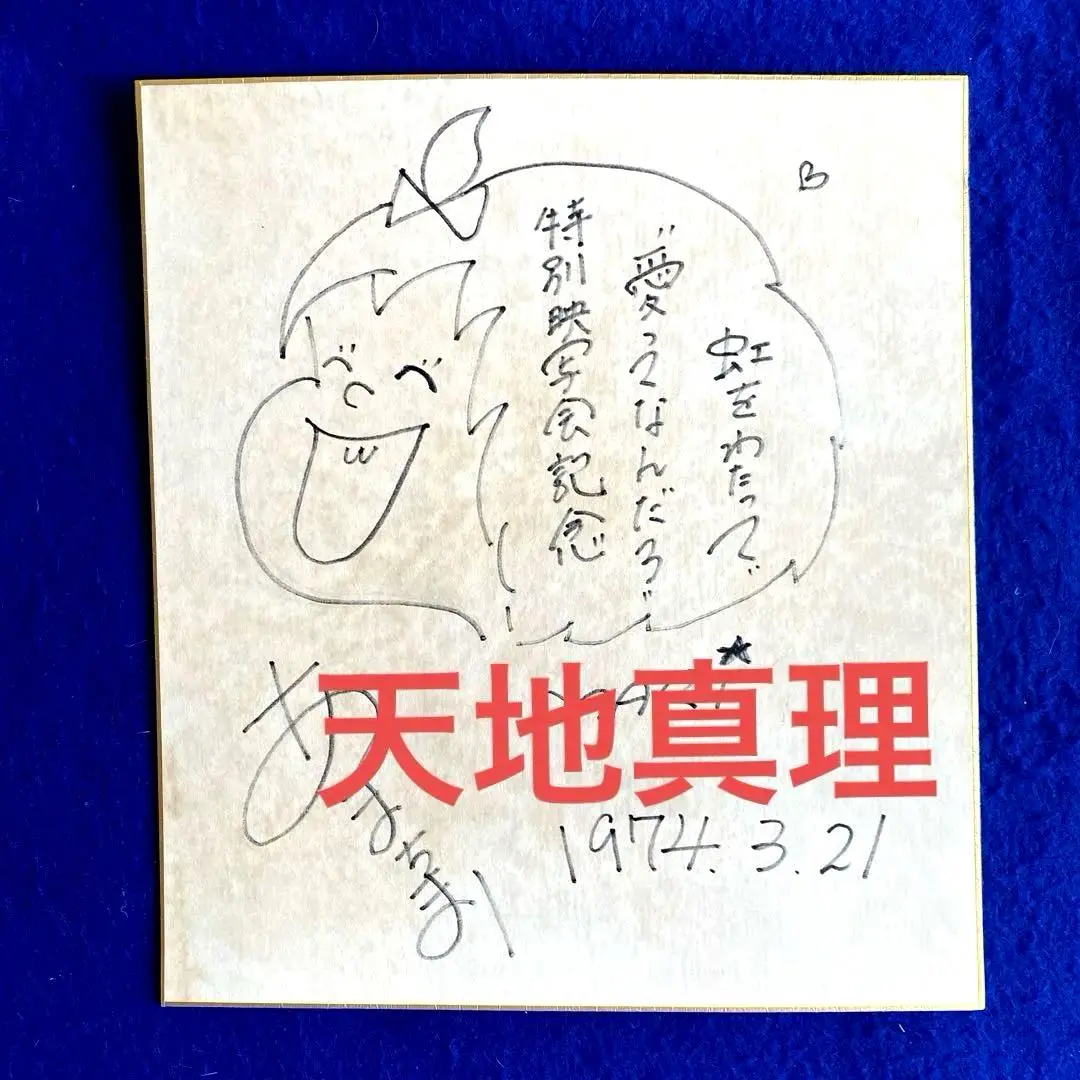 虹をわたって
"愛ってなんだろ"
特別映写会記念
天地真理
1974.3.21